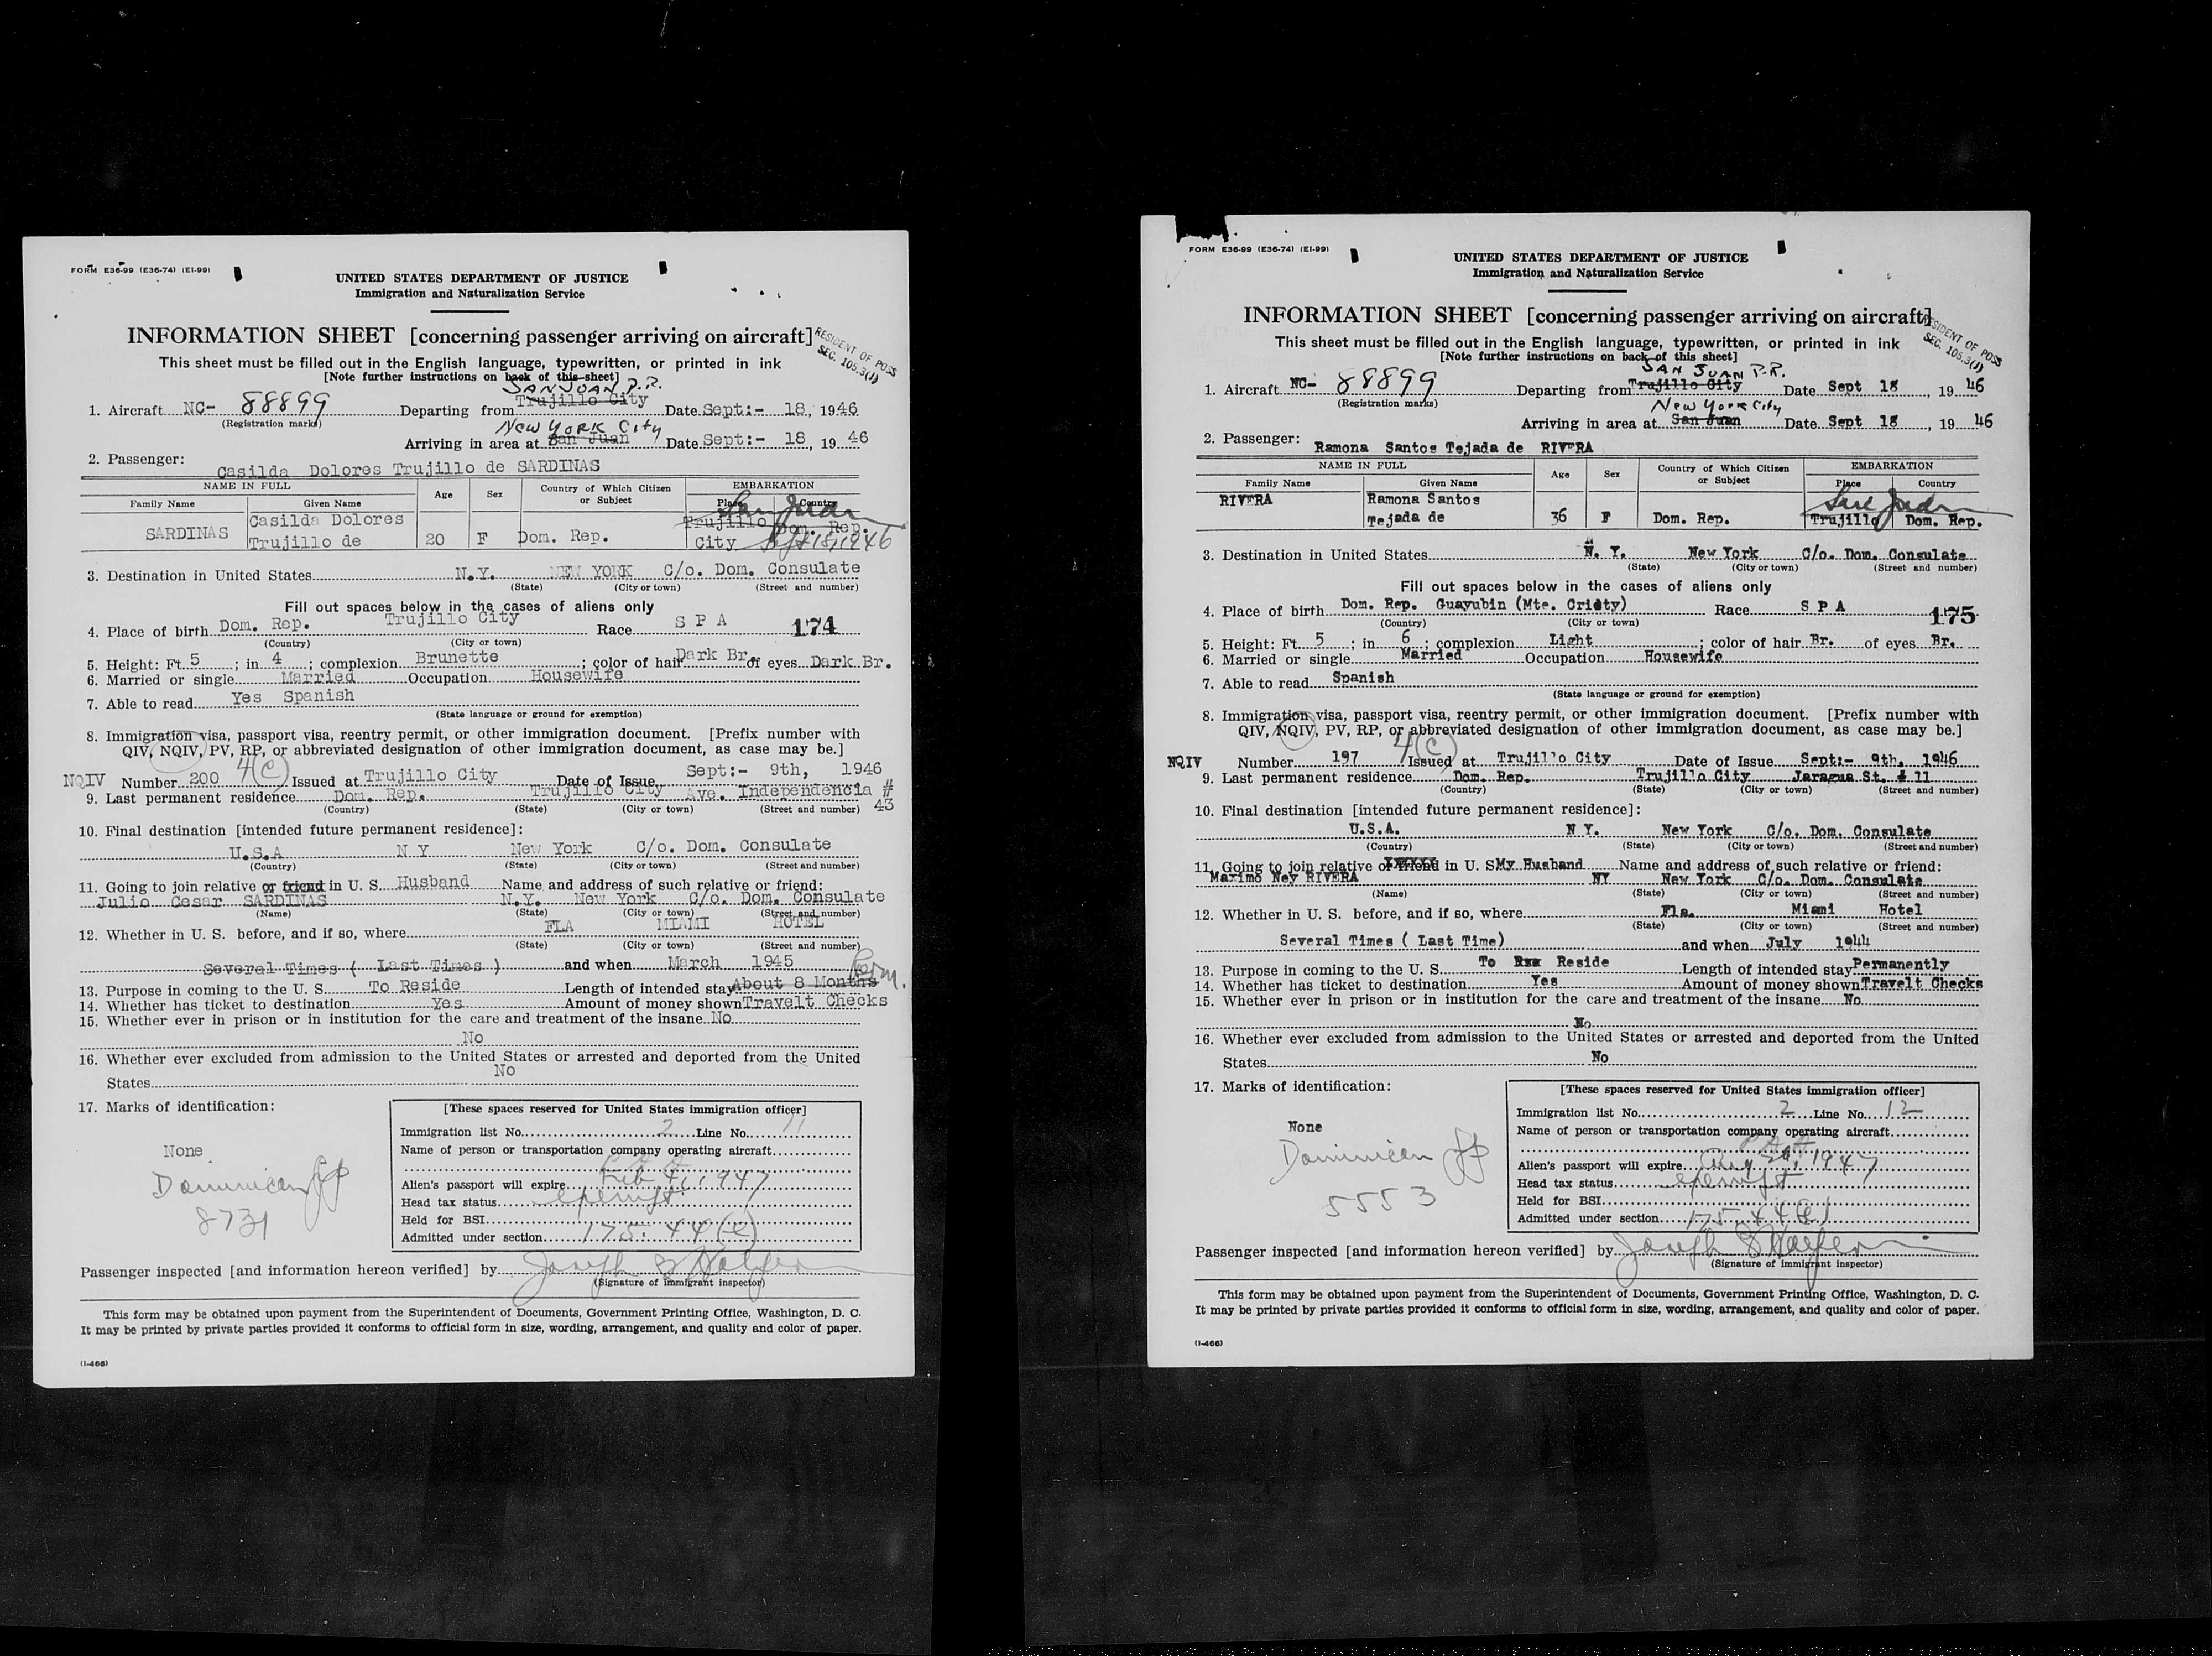 FORM E36-99 (E36-74) (EI-99)
UNITED STATES DEPARTMENT OF JUSTICE
Immigration and Naturalization Service
INFORMATION SHEET [concerning passenger arriving on aircraft]
RESIDENT OF POSS
SEC. 105.3(1)
This sheet must be filled out in the English language, typewritten, or printed in ink
[Note further instructions on back of this sheet]
SAN JUAN P.R.
1. Aircraft NC- 88899 Departing from Trujillo City Date Sept:- 18, 1946
(Registration marks)
NEW YORK City
Arriving in area at San Juan Date Sept:- 18, 19 46
2. Passenger:
Casilda Dolores Trujillo de SARDINAS
NAME IN FULL Age Sex Country of Which Citizen or Subject EMBARKATION
Family Name Given Name Place Country
San Juan
SARDINAS Casilda Dolores Trujillo de 20 F Dom. Rep. Trujillo City Dom. Rep.
Sept 18, 1946
3. Destination in United States N.Y. NEW YORK C/o. Dom. Consulate
(State) (City or town) (Street and number)
Fill out spaces below in the cases of aliens only
4. Place of birth Dom. Rep. Trujillo City Race S P A 174
(Country) (City or town)
5. Height: Ft. 5; in. 4; complexion Brunette; color of hair Dark Br. of eyes Dark Br.
6. Married or single Married Occupation Housewife
7. Able to read Yes Spanish
(State language or ground for exemption)
8. Immigration visa, passport visa, reentry permit, or other immigration document. [Prefix number with
QIV, NQIV, PV, RP, or abbreviated designation of other immigration document, as case may be.]
NQIV Number 200 4(C) Issued at Trujillo City Date of Issue Sept:- 9th, 1946
9. Last permanent residence Dom. Rep. Trujillo City Ave. Independencia # 43
(Country) (State) (City or town) (Street and number)
10. Final destination [intended future permanent residence]:
U.S.A N Y New York C/o. Dom. Consulate
(Country) (State) (City or town) (Street and number)
11. Going to join relative or friend in U. S. Husband Name and address of such relative or friend:
Julio Cesar SARDINAS N.Y. New York C/o. Dom. Consulate
(Name) (State) (City or town) (Street and number)
12. Whether in U. S. before, and if so, where FLA MIAMI HOTEL
(State) (City or town) (Street and number)
Several Times ( Last Times ) and when March 1945
Perm.
13. Purpose in coming to the U. S. To Reside Length of intended stay About 8 Months
14. Whether has ticket to destination Yes Amount of money shown Travelt Checks
15. Whether ever in prison or in institution for the care and treatment of the insane No
No
16. Whether ever excluded from admission to the United States or arrested and deported from the United
States No
17. Marks of identification:
None
Dominican
8731
[These spaces reserved for United States immigration officer]
Immigration list No. 2 Line No. 11
Name of person or transportation company operating aircraft
P A A
Alien's passport will expire Feb 4, 1947
Head tax status exempt
Held for BSI
Admitted under section 175.44(e)
Passenger inspected [and information hereon verified] by Joseph S Halpern
(Signature of immigrant inspector)
This form may be obtained upon payment from the Superintendent of Documents, Government Printing Office, Washington, D. C.
It may be printed by private parties provided it conforms to official form in size, wording, arrangement, and quality and color of paper.
(I-466)
FORM E36-99 (E36-74) (EI-99)
UNITED STATES DEPARTMENT OF JUSTICE
Immigration and Naturalization Service
INFORMATION SHEET [concerning passenger arriving on aircraft]
RESIDENT OF POSS
SEC. 105.3(1)
This sheet must be filled out in the English language, typewritten, or printed in ink
[Note further instructions on back of this sheet]
SAN JUAN P.R.
1. Aircraft NC- 88899 Departing from Trujillo City Date Sept 18, 19 46
(Registration marks)
New York City
Arriving in area at San Juan Date Sept 18, 19 46
2. Passenger:
Ramona Santos Tejada de RIVERA
NAME IN FULL Age Sex Country of Which Citizen or Subject EMBARKATION
Family Name Given Name Place Country
San Juan
RIVERA Ramona Santos Tejada de 36 F Dom. Rep. Trujillo Dom. Rep.
3. Destination in United States N. Y. New York C/o. Dom. Consulate
(State) (City or town) (Street and number)
Fill out spaces below in the cases of aliens only
4. Place of birth Dom. Rep. Guayubin (Mte. Cristy) Race S P A 175
(Country) (City or town)
5. Height: Ft. 5; in. 6; complexion Light; color of hair Br. of eyes Br.
6. Married or single Married Occupation Housewife
7. Able to read Spanish
(State language or ground for exemption)
8. Immigration visa, passport visa, reentry permit, or other immigration document. [Prefix number with
QIV, NQIV, PV, RP, or abbreviated designation of other immigration document, as case may be.]
NQIV Number 197 4(C) Issued at Trujillo City Date of Issue Sept:- 9th, 1946
9. Last permanent residence Dom. Rep. Trujillo City Jaragua St. # 11
(Country) (State) (City or town) (Street and number)
10. Final destination [intended future permanent residence]:
U.S.A. N Y. New York C/o. Dom. Consulate
(Country) (State) (City or town) (Street and number)
11. Going to join relative or friend in U. S. My Husband Name and address of such relative or friend:
Maximo Ney RIVERA NY New York C/o. Dom. Consulate
(Name) (State) (City or town) (Street and number)
12. Whether in U. S. before, and if so, where Fla. Miami Hotel
(State) (City or town) (Street and number)
Several Times ( Last Time) and when July 1944
13. Purpose in coming to the U. S. To Reside Length of intended stay Permanently
14. Whether has ticket to destination Yes Amount of money shown Travelt Checks
15. Whether ever in prison or in institution for the care and treatment of the insane No
No
16. Whether ever excluded from admission to the United States or arrested and deported from the United
States No
17. Marks of identification:
None
Dominican
5553
[These spaces reserved for United States immigration officer]
Immigration list No. 2 Line No. 12
Name of person or transportation company operating aircraft
P A A
Alien's passport will expire 1947
Head tax status exempt
Held for BSI
Admitted under section 175.44(e)
Passenger inspected [and information hereon verified] by Joseph S Halpern
(Signature of immigrant inspector)
This form may be obtained upon payment from the Superintendent of Documents, Government Printing Office, Washington, D. C.
It may be printed by private parties provided it conforms to official form in size, wording, arrangement, and quality and color of paper.
(I-466)